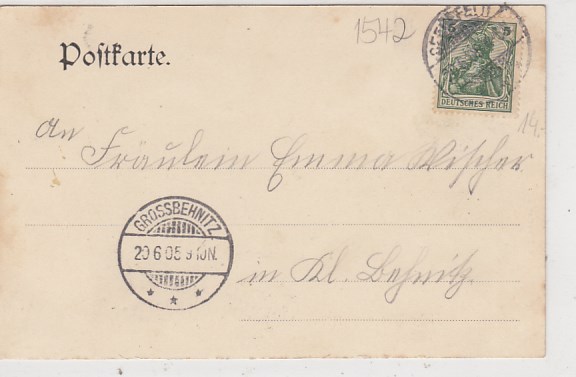 1542
Postkarte.
DEUTSCHES REICH
14.-
An
Fräulein Emma Wischer
GROSSBEHNITZ
20 6 05 9 10N.
in Kl. Behnitz.